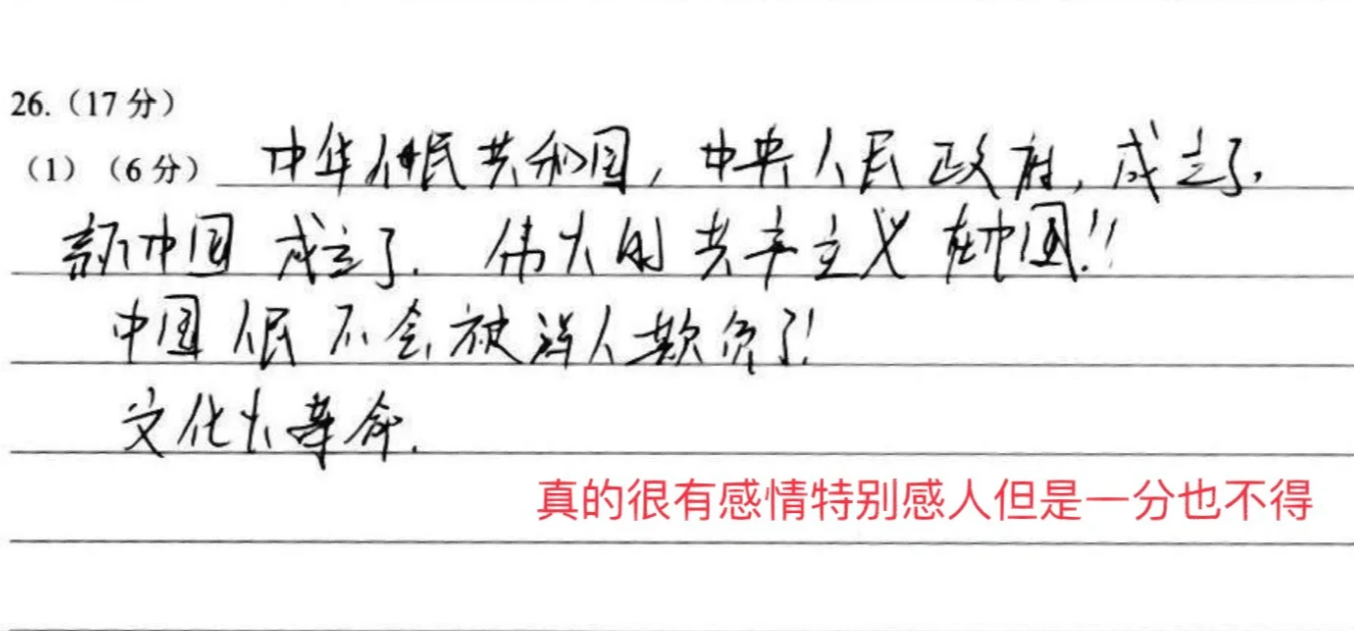 26.（17 分）
（1）（6 分） 中华人民共和国，中央人民政府，成立了，
新中国 成立了. 伟大的 共产主义 在中国!!
中国人民 不会被洋人欺负了!
文化大革命.
真的很有感情特别感人但是一分也不得